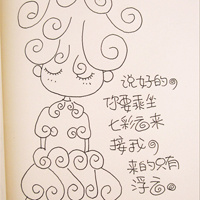 说好的
你要乘坐
七彩云来
接我
来的只有
浮云